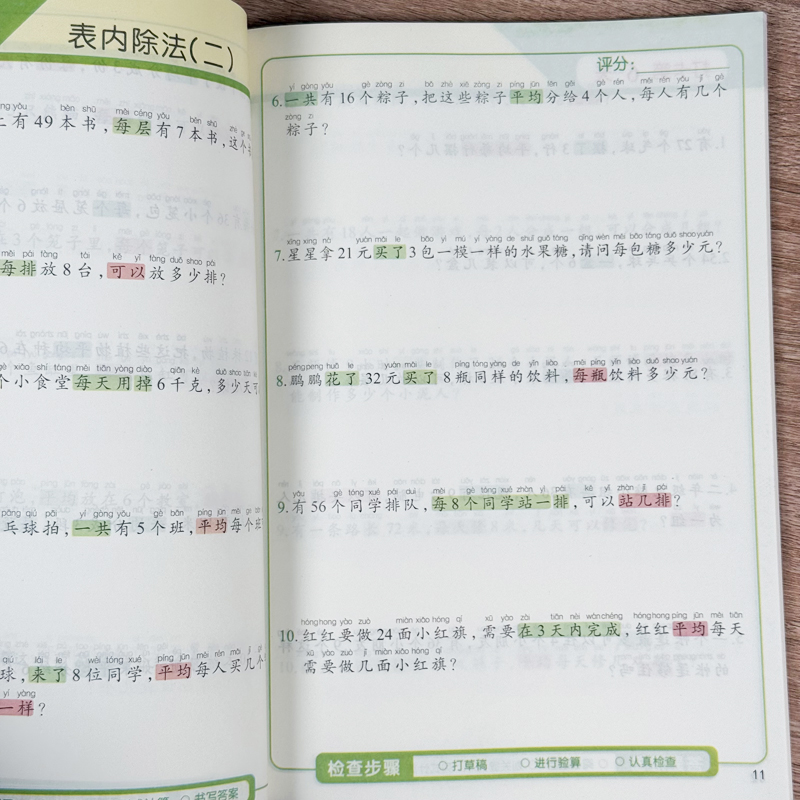 表内除法(二)
有 49 本书，每层有 7 本书，这个
每排放 8 台，可以放多少排？
个小食堂每天用掉 6 千克，多少天可
乓球拍，一共有 5 个班，平均每个班
球，来了 8 位同学，平均每人买几个
一样？
书写答案
评分：
yí gòng yǒu gè zòng zi bǎ zhè xiē zòng zi píng jūn fēn gěi gè rén měi rén yǒu jǐ gè
6.一共有 16 个粽子，把这些粽子平均分给 4 个人，每人有几个
zòng zi
粽子？
xīng xing ná yuán mǎi le bāo yì mú yí yàng de shuǐ guǒ táng qǐng wèn měi bāo táng duō shao yuán
7.星星拿 21 元买了 3 包一模一样的水果糖，请问每包糖多少元？
péng peng huā le yuán mǎi le píng tóng yàng de yǐn liào měi píng yǐn liào duō shao yuán
8.鹏鹏花了 32 元买了 8 瓶同样的饮料，每瓶饮料多少元？
yǒu gè tóng xué pái duì měi gè tóng xué zhàn yì pái kě yǐ zhàn jǐ pái
9.有 56 个同学排队，每 8 个同学站一排，可以站几排？
hóng hong yào zuò miàn xiǎo hóng qí xū yào zài tiān nèi wán chéng hóng hong píng jūn měi tiān
10.红红要做 24 面小红旗，需要在 3 天内完成，红红平均每天
xū yào zuò jǐ miàn xiǎo hóng qí
需要做几面小红旗？
检查步骤 ○ 打草稿 ○ 进行验算 ○ 认真检查
11